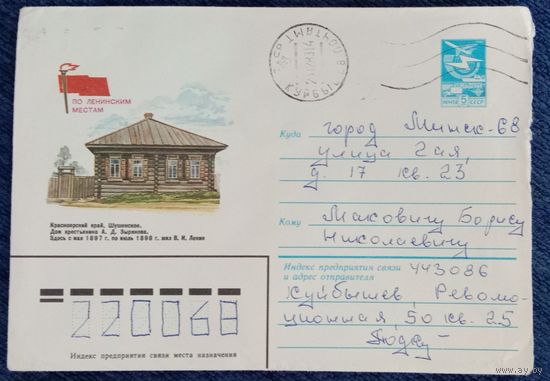 ПО ЛЕНИНСКИМ
МЕСТАМ
Красноярский край, Шушенское.
Дом крестьянина А. Д. Зырянова.
Здесь с мая 1897 г. по июль 1898 г. жил В. И. Ленин
ПОЧТАМТ
КУЙБЫШЕВ
ПОЧТА СССР
5
Куда город Минск-68
улица Гая,
д. 17 кв. 23
Кому Маковичу Борису
Николаевичу
Индекс предприятия связи
и адрес отправителя 443086
Куйбышев, Револю-
ционная, 50 кв. 25
220068
Индекс предприятия связи места назначения
www.ay.by